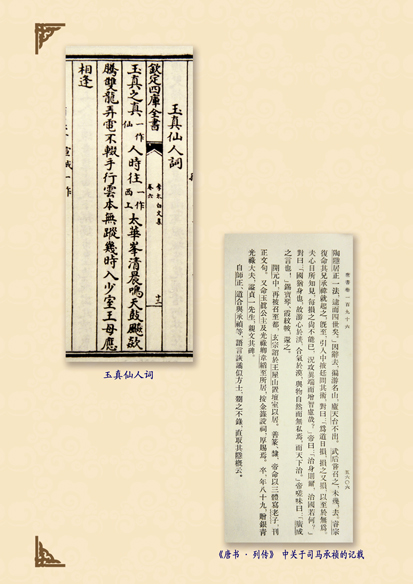 玉真仙人詞
欽定四庫全書 李太白文集 卷六 十二
玉真之真一作仙人時往一作西上太華峯清晨鳴天鼓飈欻
騰雙龍弄電不輟手行雲本無蹤幾時入少室王母應
相逢
玉真仙人词
唐書卷一百九十六 五六〇六
陶隱居正一法，逮而四世矣。」因辭去，徧游名山，廬天台不出。武后嘗召之，未幾，去。睿宗
復命其兄承禕就起之。既至，引入中掖廷問其術，對曰：「爲道日損，損之又損，以至於無爲。
夫心目所知見，每損之尚不能已，況攻異端而增智慮哉？」帝曰：「治身則爾，治國若何？」
對曰：「國猶身也，故游心於淡，合氣於漠，與物自然而無私焉，而天下治。」帝嗟味曰：「廣成
之言也！」錫寶琴、霞紋帔，還之。
開元中，再被召至都，玄宗詔於王屋山置壇室以居。善篆、隸，帝命以三體寫老子，刊
正文句。又命玉真公主及光祿卿韋縚至所居，按金籙設祠，厚賜焉。卒，年八十九，贈銀青
光祿大夫，謚貞一先生，親文其碑。
自師正、道合與承禎等，語言詼譎似方士，剟之不錄，直取其隱概云。
《唐书·列传》 中关于司马承祯的记载